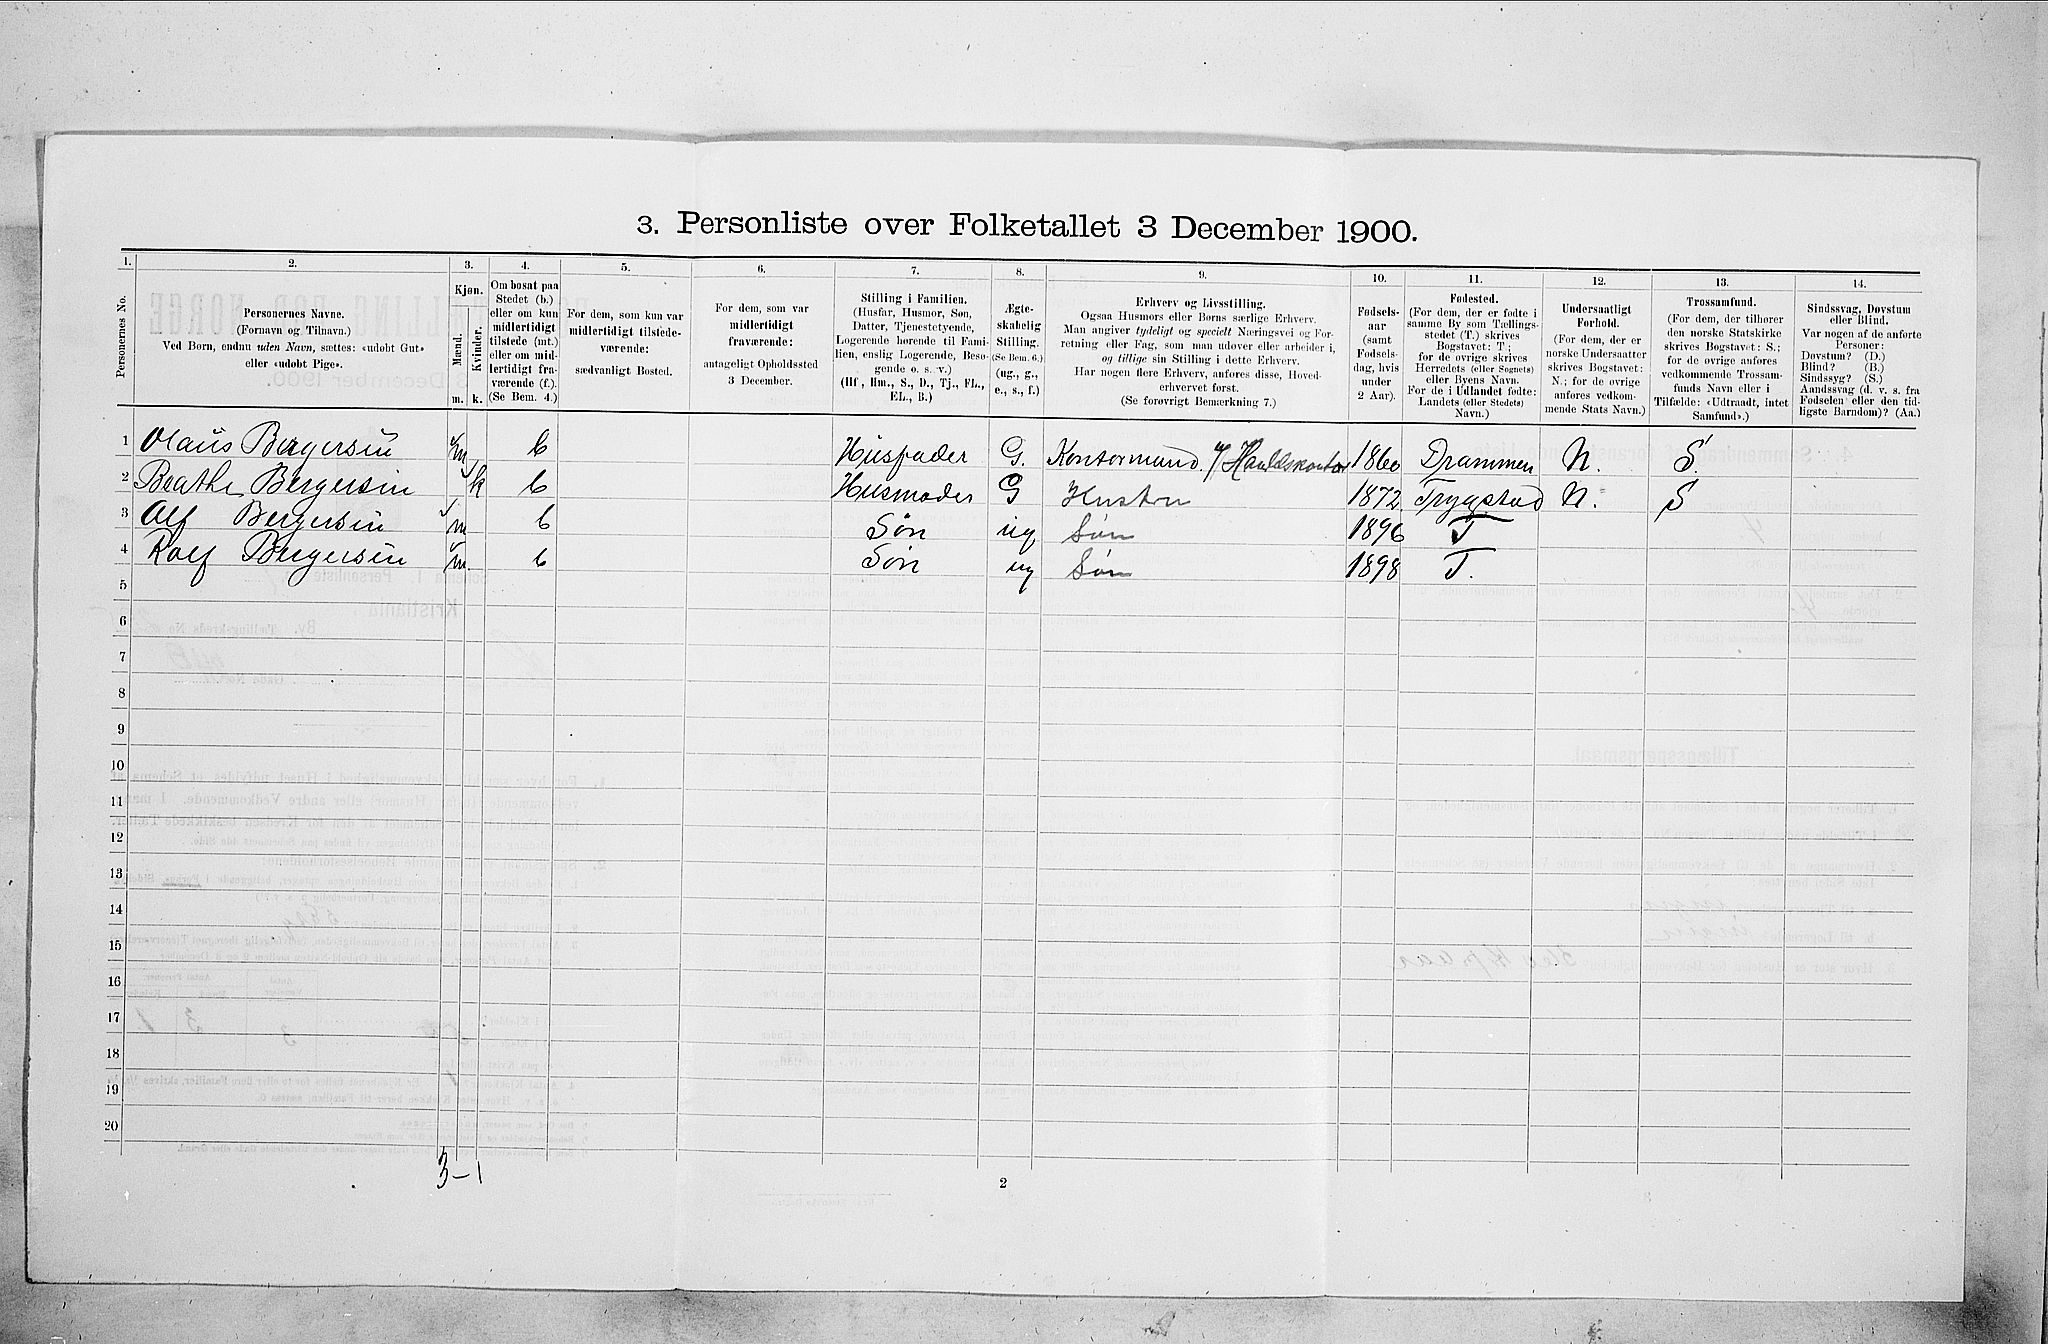 3. Personliste over Folketallet 3 December 1900.
1. 2. 3. 4. 5. 6. 7. 8. 9. 10. 11. 12. 13. 14.
Personernes No.
Personernes Navne.
(Fornavn og Tilnavn.)
Ved Børn, endnu uden Navn, sættes: «udøbt Gut»
eller «udøbt Pige».
Kjøn.
Mænd.
Kvinder.
m. k.
Om bosat paa
Stedet (b.)
eller om kun
midlertidigt
tilstede (mt.)
eller om mid-
lertidigt fra-
værende (f.).
(Se Bem. 4.)
For dem, som kun var
midlertidigt tilstede-
værende:
sædvanligt Bosted.
For dem, som var
midlertidigt
fraværende:
antageligt Opholdssted
3 December.
Stilling i Familien.
(Husfar, Husmor, Søn,
Datter, Tjenestetyende,
Logerende hørende til Fami-
lien, enslig Logerende, Besø-
gende o. s. v.)
(Hf, Hm., S., D., Tj., FL.,
EL., B.)
Ægte-
skabelig
Stilling.
(Se Bem. 6.)
(ug., g.,
e., s., f.)
Erhverv og Livsstilling.
Ogsaa Husmors eller Børns særlige Erhverv.
Man angiver tydeligt og specielt Næringsvei og For-
retning eller Fag, som man udover eller arbeider i,
og tillige sin Stilling i dette Erhverv.
Har nogen flere Erhverv, anføres disse, Hoved-
erhvervet først.
(Se forøvrigt Bemærkning 7.)
Fødsels-
aar
(samt
Fødsels-
dag, hvis
under
2 Aar).
Fødested.
(For dem, der er fødte i
samme By som Tællings-
stedet (T.) skrives
Bogstavet: T.;
for de øvrige skrives
Herredets (eller Sognets)
eller Byens Navn.
For de i Udlandet fødte:
Landets (eller Stedets)
Navn.)
Undersaatligt
Forhold.
(For dem, der er
norske Undersaatter
skrives Bogstavet:
N.; for de øvrige
anføres vedkom-
mende Stats Navn.)
Trossamfund.
(For dem, der tilhører
den norske Statskirke
skrives Bogstavet: S.;
for de øvrige anføres
vedkommende Trossam-
funds Navn eller i
Tilfælde: «Udtraadt, intet
Samfund».)
Sindssvag, Døvstum
eller Blind.
Var nogen af de anførte
Personer:
Døvstum? (D.)
Blind? (B.)
Sindssyg? (S.)
Aandssvag (d. v. s. fra
Fødselen eller den tid-
ligste Barndom)? (Aa.)
1 Olaüs Bergersen m b Husfader G. Kontormand. Drammen 1860 N. S.
2 Beathe Bergersen k b Husmoder G Hustru 1872 Trygstad N. S
3 Alf Bergersen m b Søn ug Søn 1896 T
4 Rolf Bergersen m b Søn ug Søn 1898 T.
5
6
7
8
9
10
11
12
13
14
15
16
17
18
19
20
3-1
2